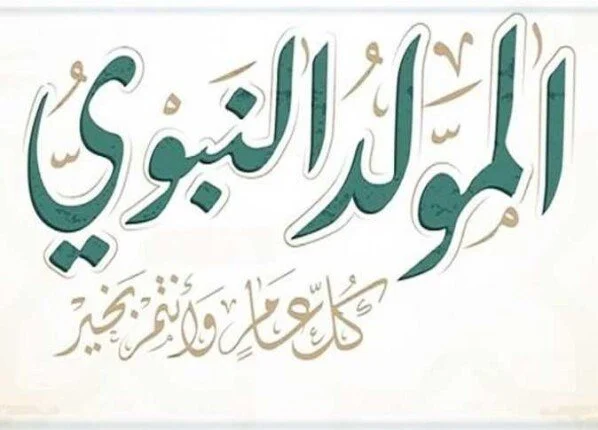 المولد النبوي
كُلُّ عَامٍ وَأَنْتُمْ بِخَيْر